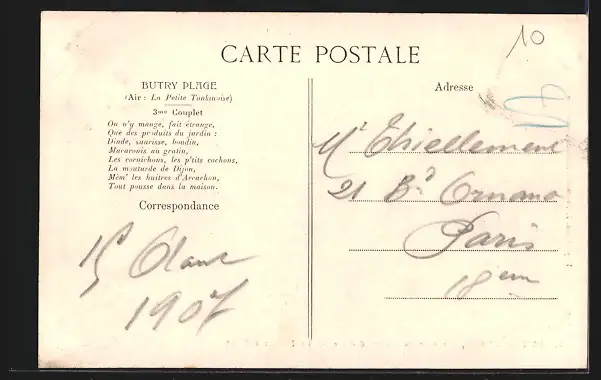 CARTE POSTALE
10
BUTRY PLAGE
(Air : La Petite Tonkinoise)
3me Couplet
On n'y mange, fait étrange,
Que des produits du jardin :
Dinde, saucisse, boudin,
Macaronis au gratin,
Les cornichons, les p'tits cochons,
La moutarde de Dijon,
Mêm' les huîtres d'Arcachon,
Tout pousse dans la maison.
Correspondance
15 Oaut
1907
Adresse
Mr Thiellement
21 Bd Ornano
Paris
18em